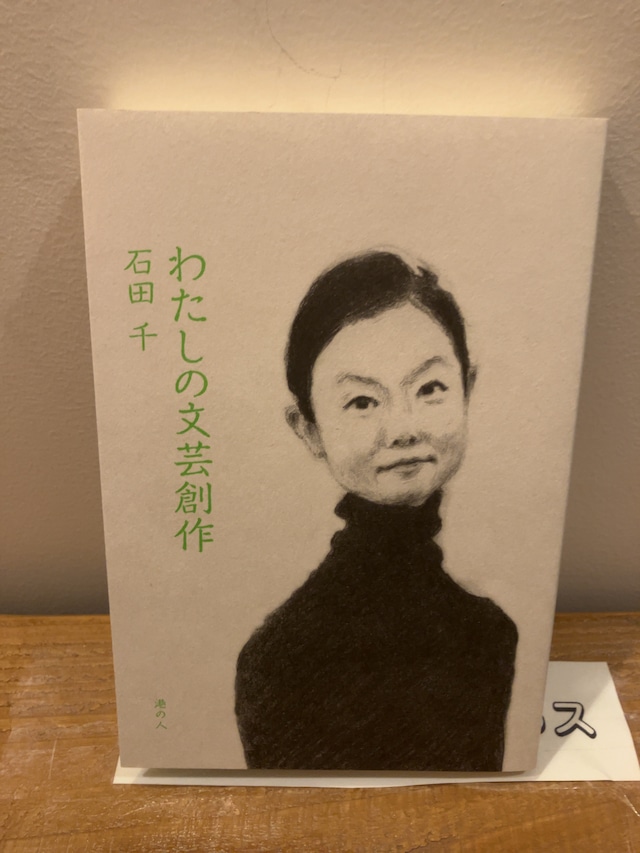 わたしの文芸創作
石田 千
港の人
ス